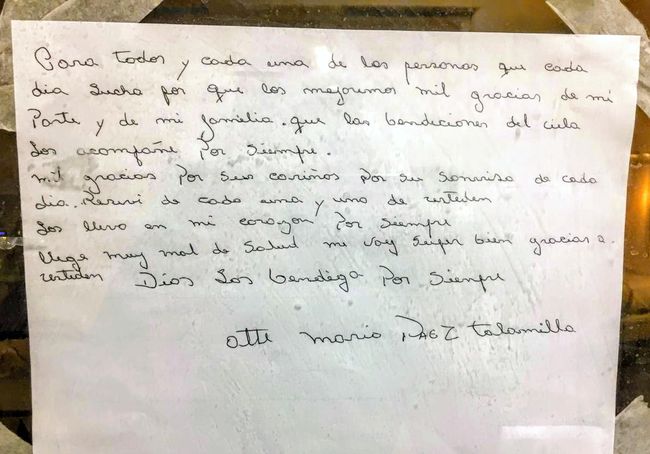 Para todos y cada una de las personas que cada
dia lucha por que los mejoremos mil gracias de mi
Parte y de mi familia. que las bendiciones del ciela
Los acompañe Por Siempre.
mil gracias Por Sus cariños Por Su Sonrisa de cada
dia. Recivi de cada una y uno de ustedes
Los llevo en mi corazon Por Siempre
llege muy mal de Salud me voy Super bien gracias a
ustedes Dios Los bendiga Por Siempre
Atte Mario PAEZ talamilla